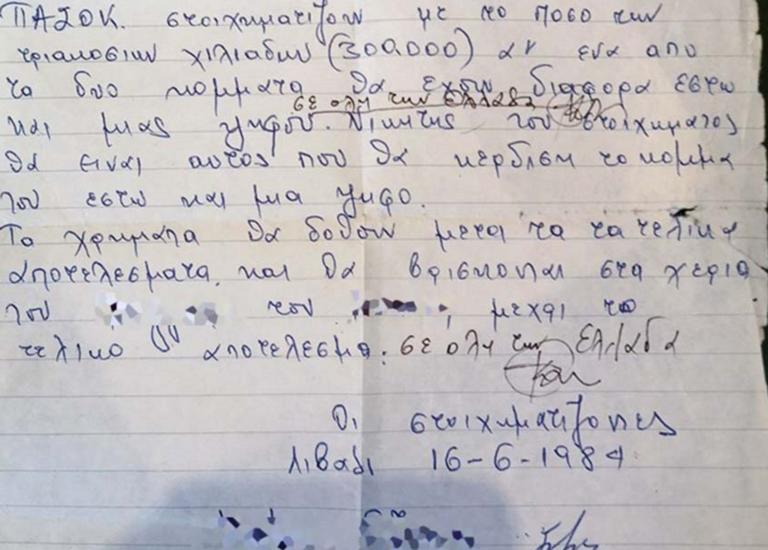 ΠΑΣΟΚ. στοιχηματιζουν με το ποσο των
τριακοσιων χιλιαδων (300.000) αν ενα απο
τα δυο κομματα θα εχουν διαφορα εστω
σε ολη την Ελλαδα
και μιας ψηφου. Νικητης του στοιχηματος
θα ειναι αυτος που θα κερδισει το κομμα
του εστω και μια ψηφο.
Τα χρηματα θα δοθουν μετα τα τα τελικα
αποτελεσματα. και θα βρισκονται στα χερια
του του , μεχρι το
τελικο αποτελεσμα. σε όλη την Ελλαδα
Οι στοιχηματιζοντες
Λιβαδι 16-6-1984